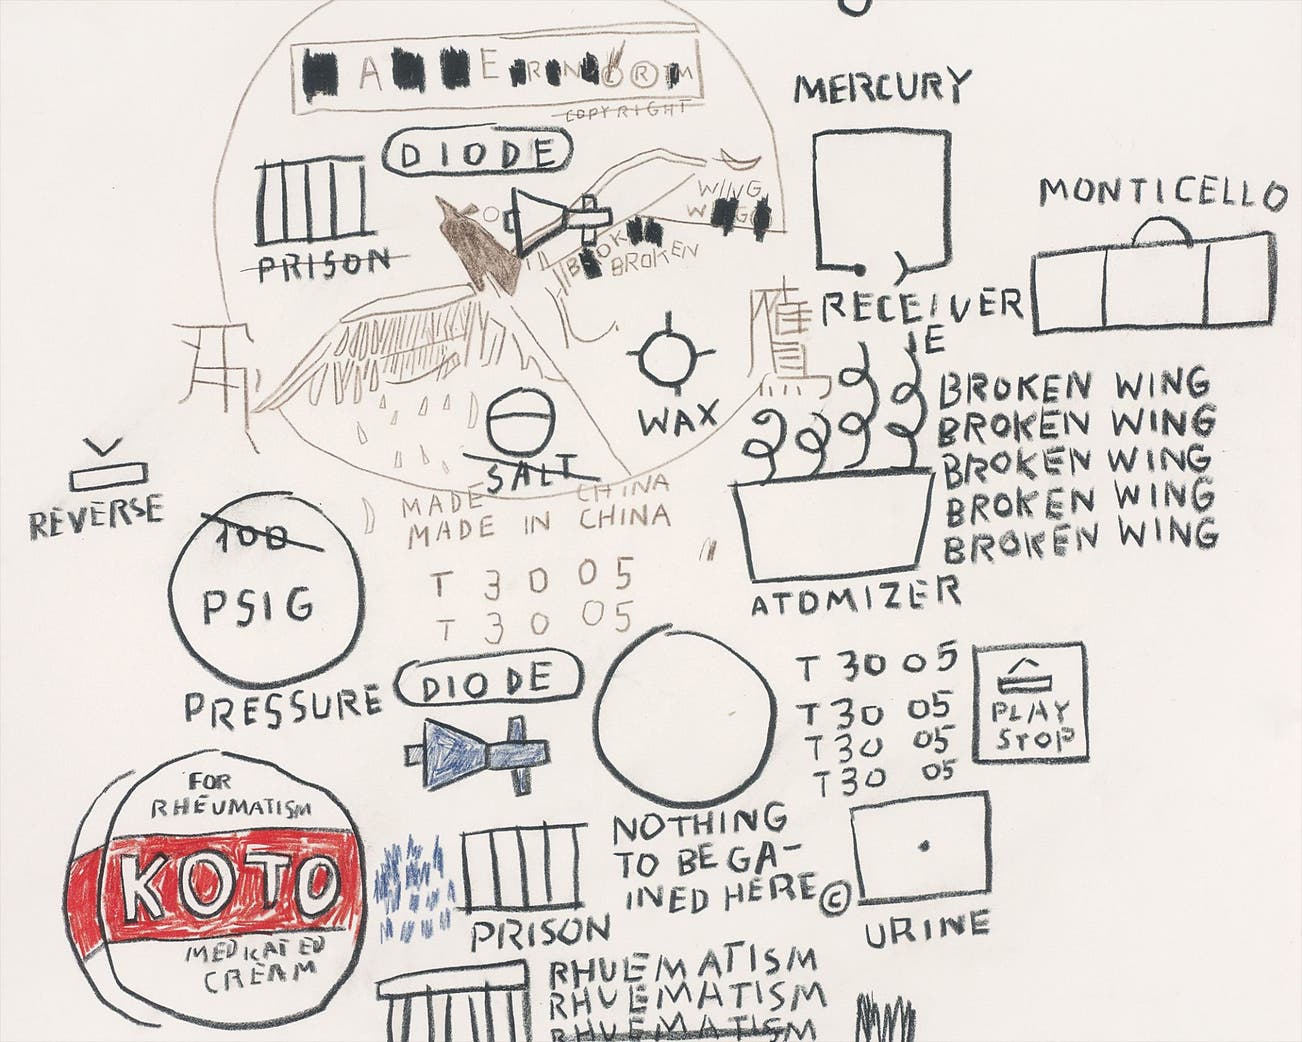 COPYRIGHT
MERCURY
DIODE
MONTICELLO
WING
PRISON
BROKEN
RECEIVER
IE
BROKEN WING
WAX
BROKEN WING
BROKEN WING
SALT
BROKEN WING
BROKEN WING
MADE CHINA
MADE IN CHINA
REVERSE
100
PSIG
T 30 05
T 30 05
ATOMIZER
PRESSURE
DIODE
T 30 05
T 30 05
T 30 05
T 30 05
PLAY
STOP
FOR
RHEUMATISM
KOTO
MEDICATED
CREAM
NOTHING
TO BE GA-
INED HERE ©
PRISON
URINE
RHUEMATISM
RHUEMATISM
RHUEMATISM